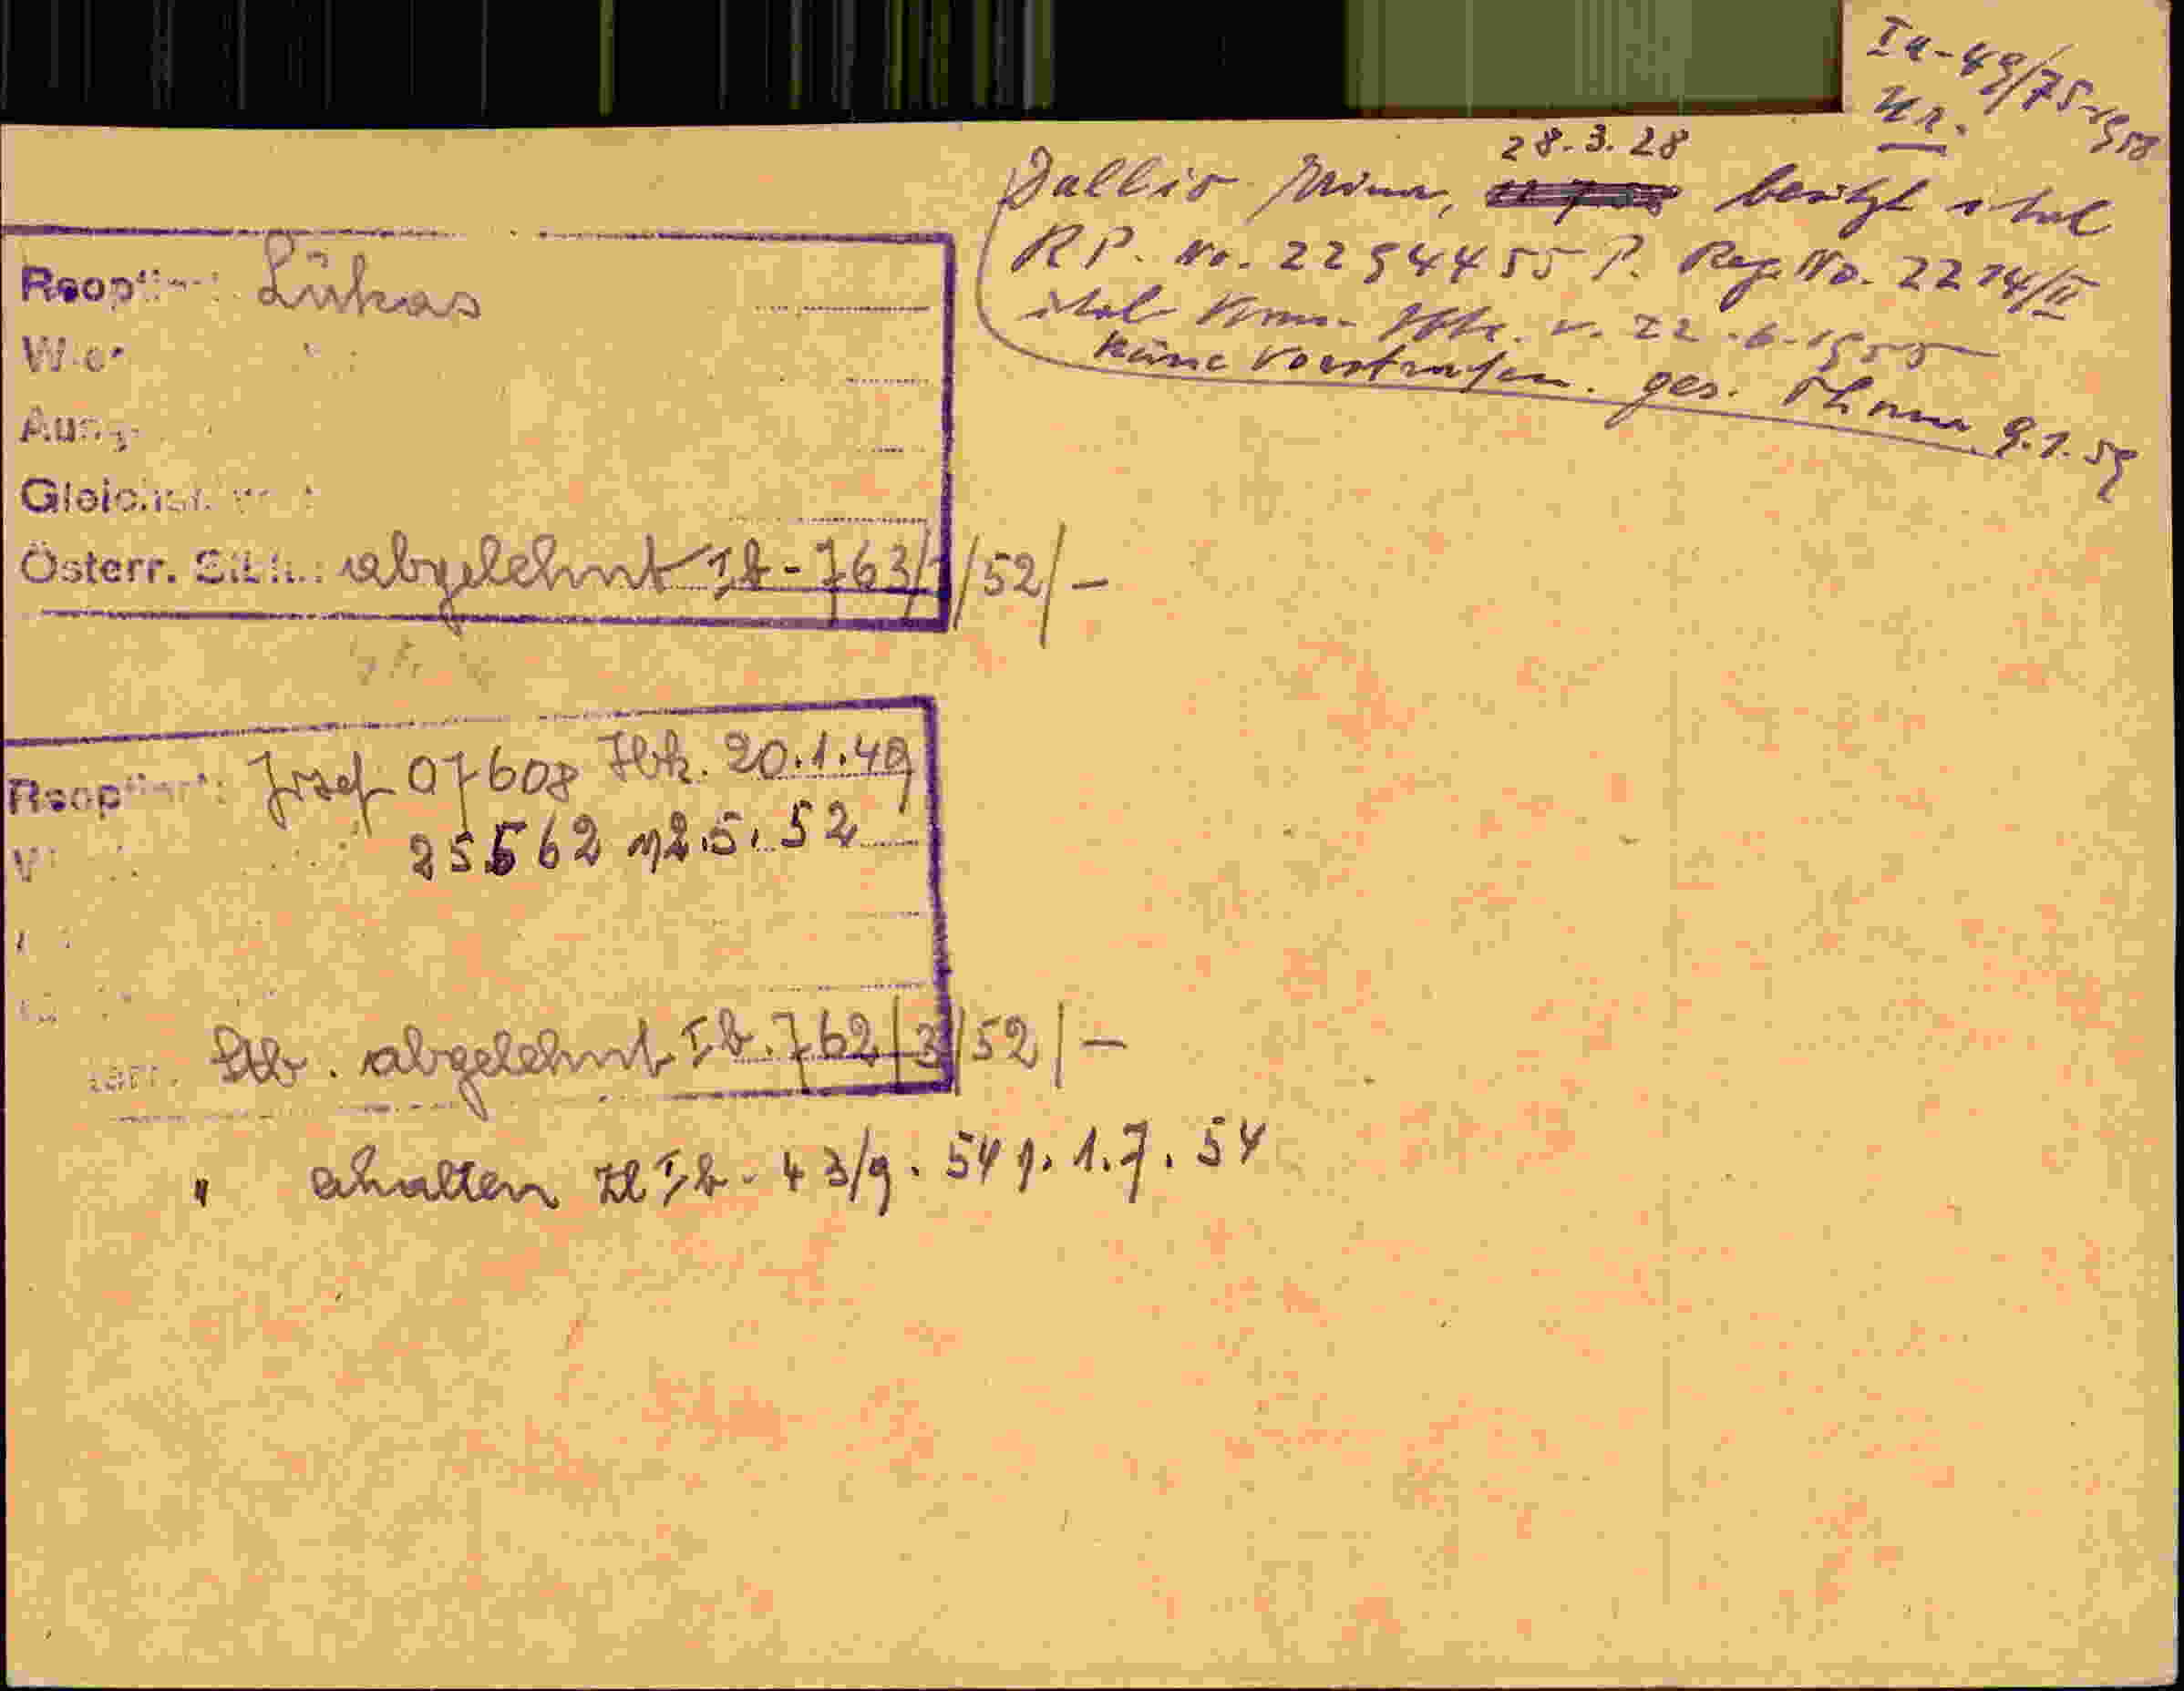 Ia-49/75-1958
28.3.28
Dallio Minna, besitzt ital
RP. No. 2294455 P. Reg. No. 2214/II
ital Kons. Ibk. v. 22.6.1955
Keine Vorstrafen. ges. Thoma 9.1.59
Reoptiert: Lukas
Österr. Stb.: abgelehnt Ib-763/1/52/-
Reoptiert: Josef 07608 Ibk. 20.1.49
25562 12.5.52
Stb. abgelehnt Ib.762/3/52/-
" erhalten Zl Ib-43/9.54 1.7.54